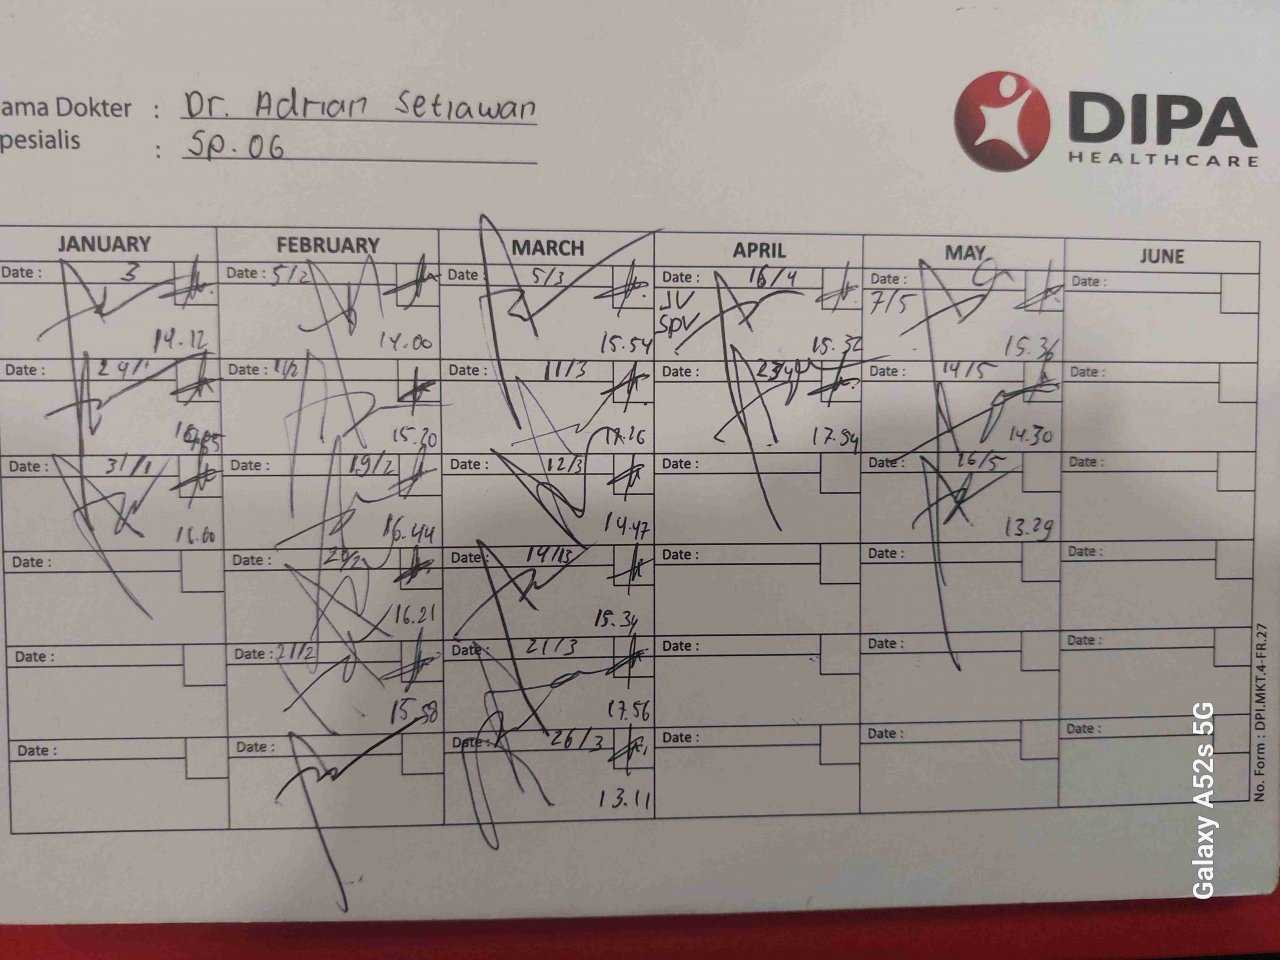 ama Dokter : Dr. Adrian Setiawan
pesialis : Sp. OG
DIPA
HEALTHCARE
JANUARY FEBRUARY MARCH APRIL MAY JUNE
Date : 3 Date : 5/2 Date : 5/3 Date : 16/4 Date : 7/5 Date :
JV
SPV
14.12 14.00 15.54 15.32 15.36
Date : Date : Date : 11/3 Date : Date : 14/5 Date :
15.20 17.26 17.54 14.30
Date : 31/1 Date : 19/2 Date : 12/3 Date : Date : 26/5 Date :
16.00 16.44 14.47 13.29
Date : Date : Date : 14/3 Date : Date : Date :
16.21 15.34
Date : Date : 21/2 Date : 21/3 Date : Date : Date :
15.58 17.56
Date : Date : Date : 26/3 Date : Date : Date :
13.11
No. Form : DPI.MKT.4-FR.27
Galaxy A52s 5G